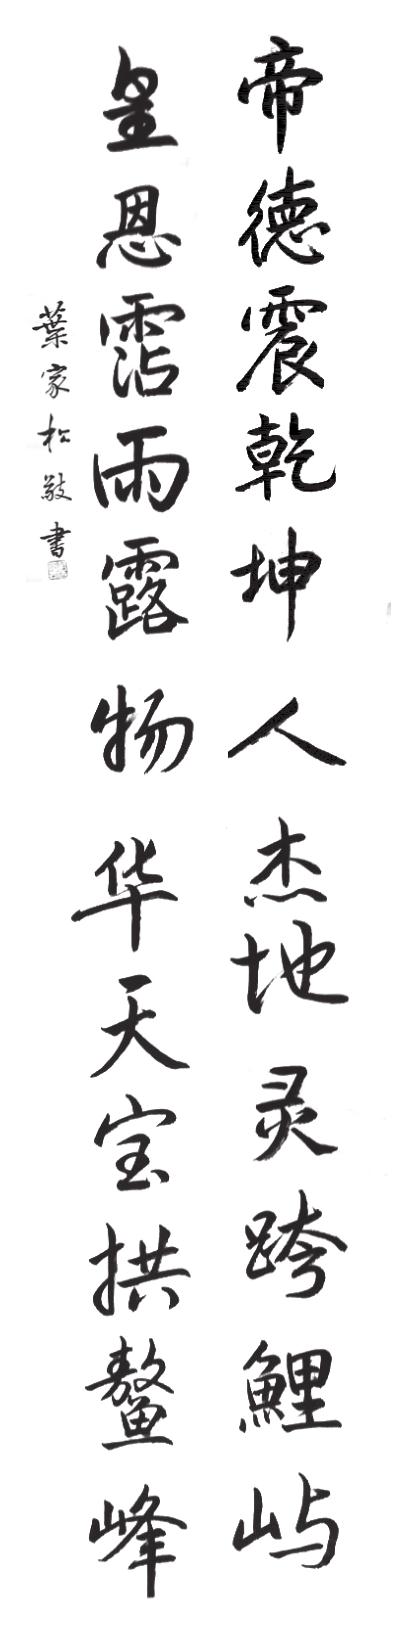 帝德震乾坤人杰地灵跨鲤屿
皇恩霑雨露物华天宝拱鳌峰
葉家松敬书